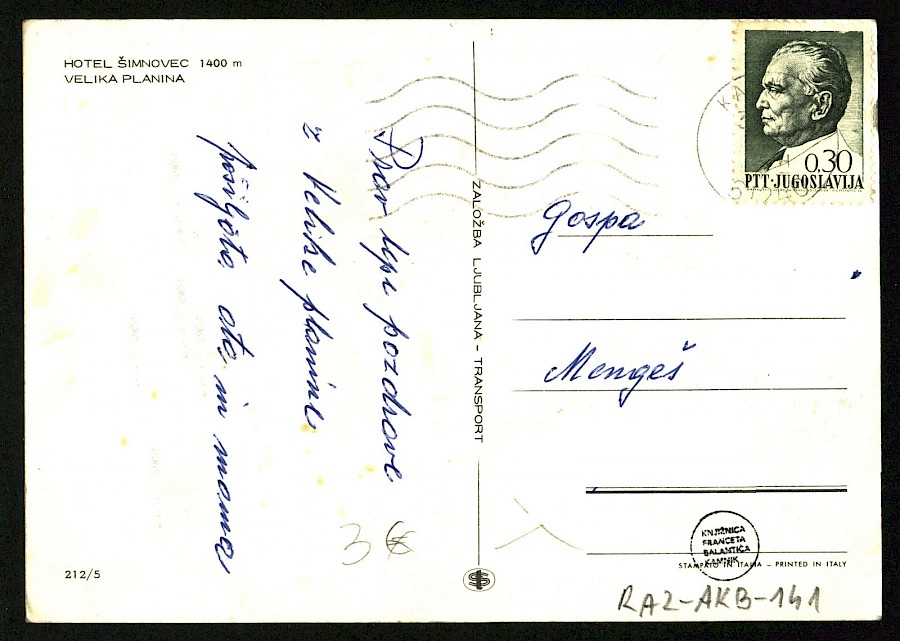 HOTEL ŠIMNOVEC 1400 m
VELIKA PLANINA
Prav lepe pozdrave
z Velike planine
pošiljata ata in mama
212/5
3 €
ZALOŽBA LJUBLJANA - TRANSPORT
0,30
PTT·JUGOSLAVIJA
Gospa
Mengeš
KNJIŽNICA
FRANCETA
BALANTIČA
KAMNIK
STAMPATO IN ITALIA - PRINTED IN ITALY
RAZ-AKB-141